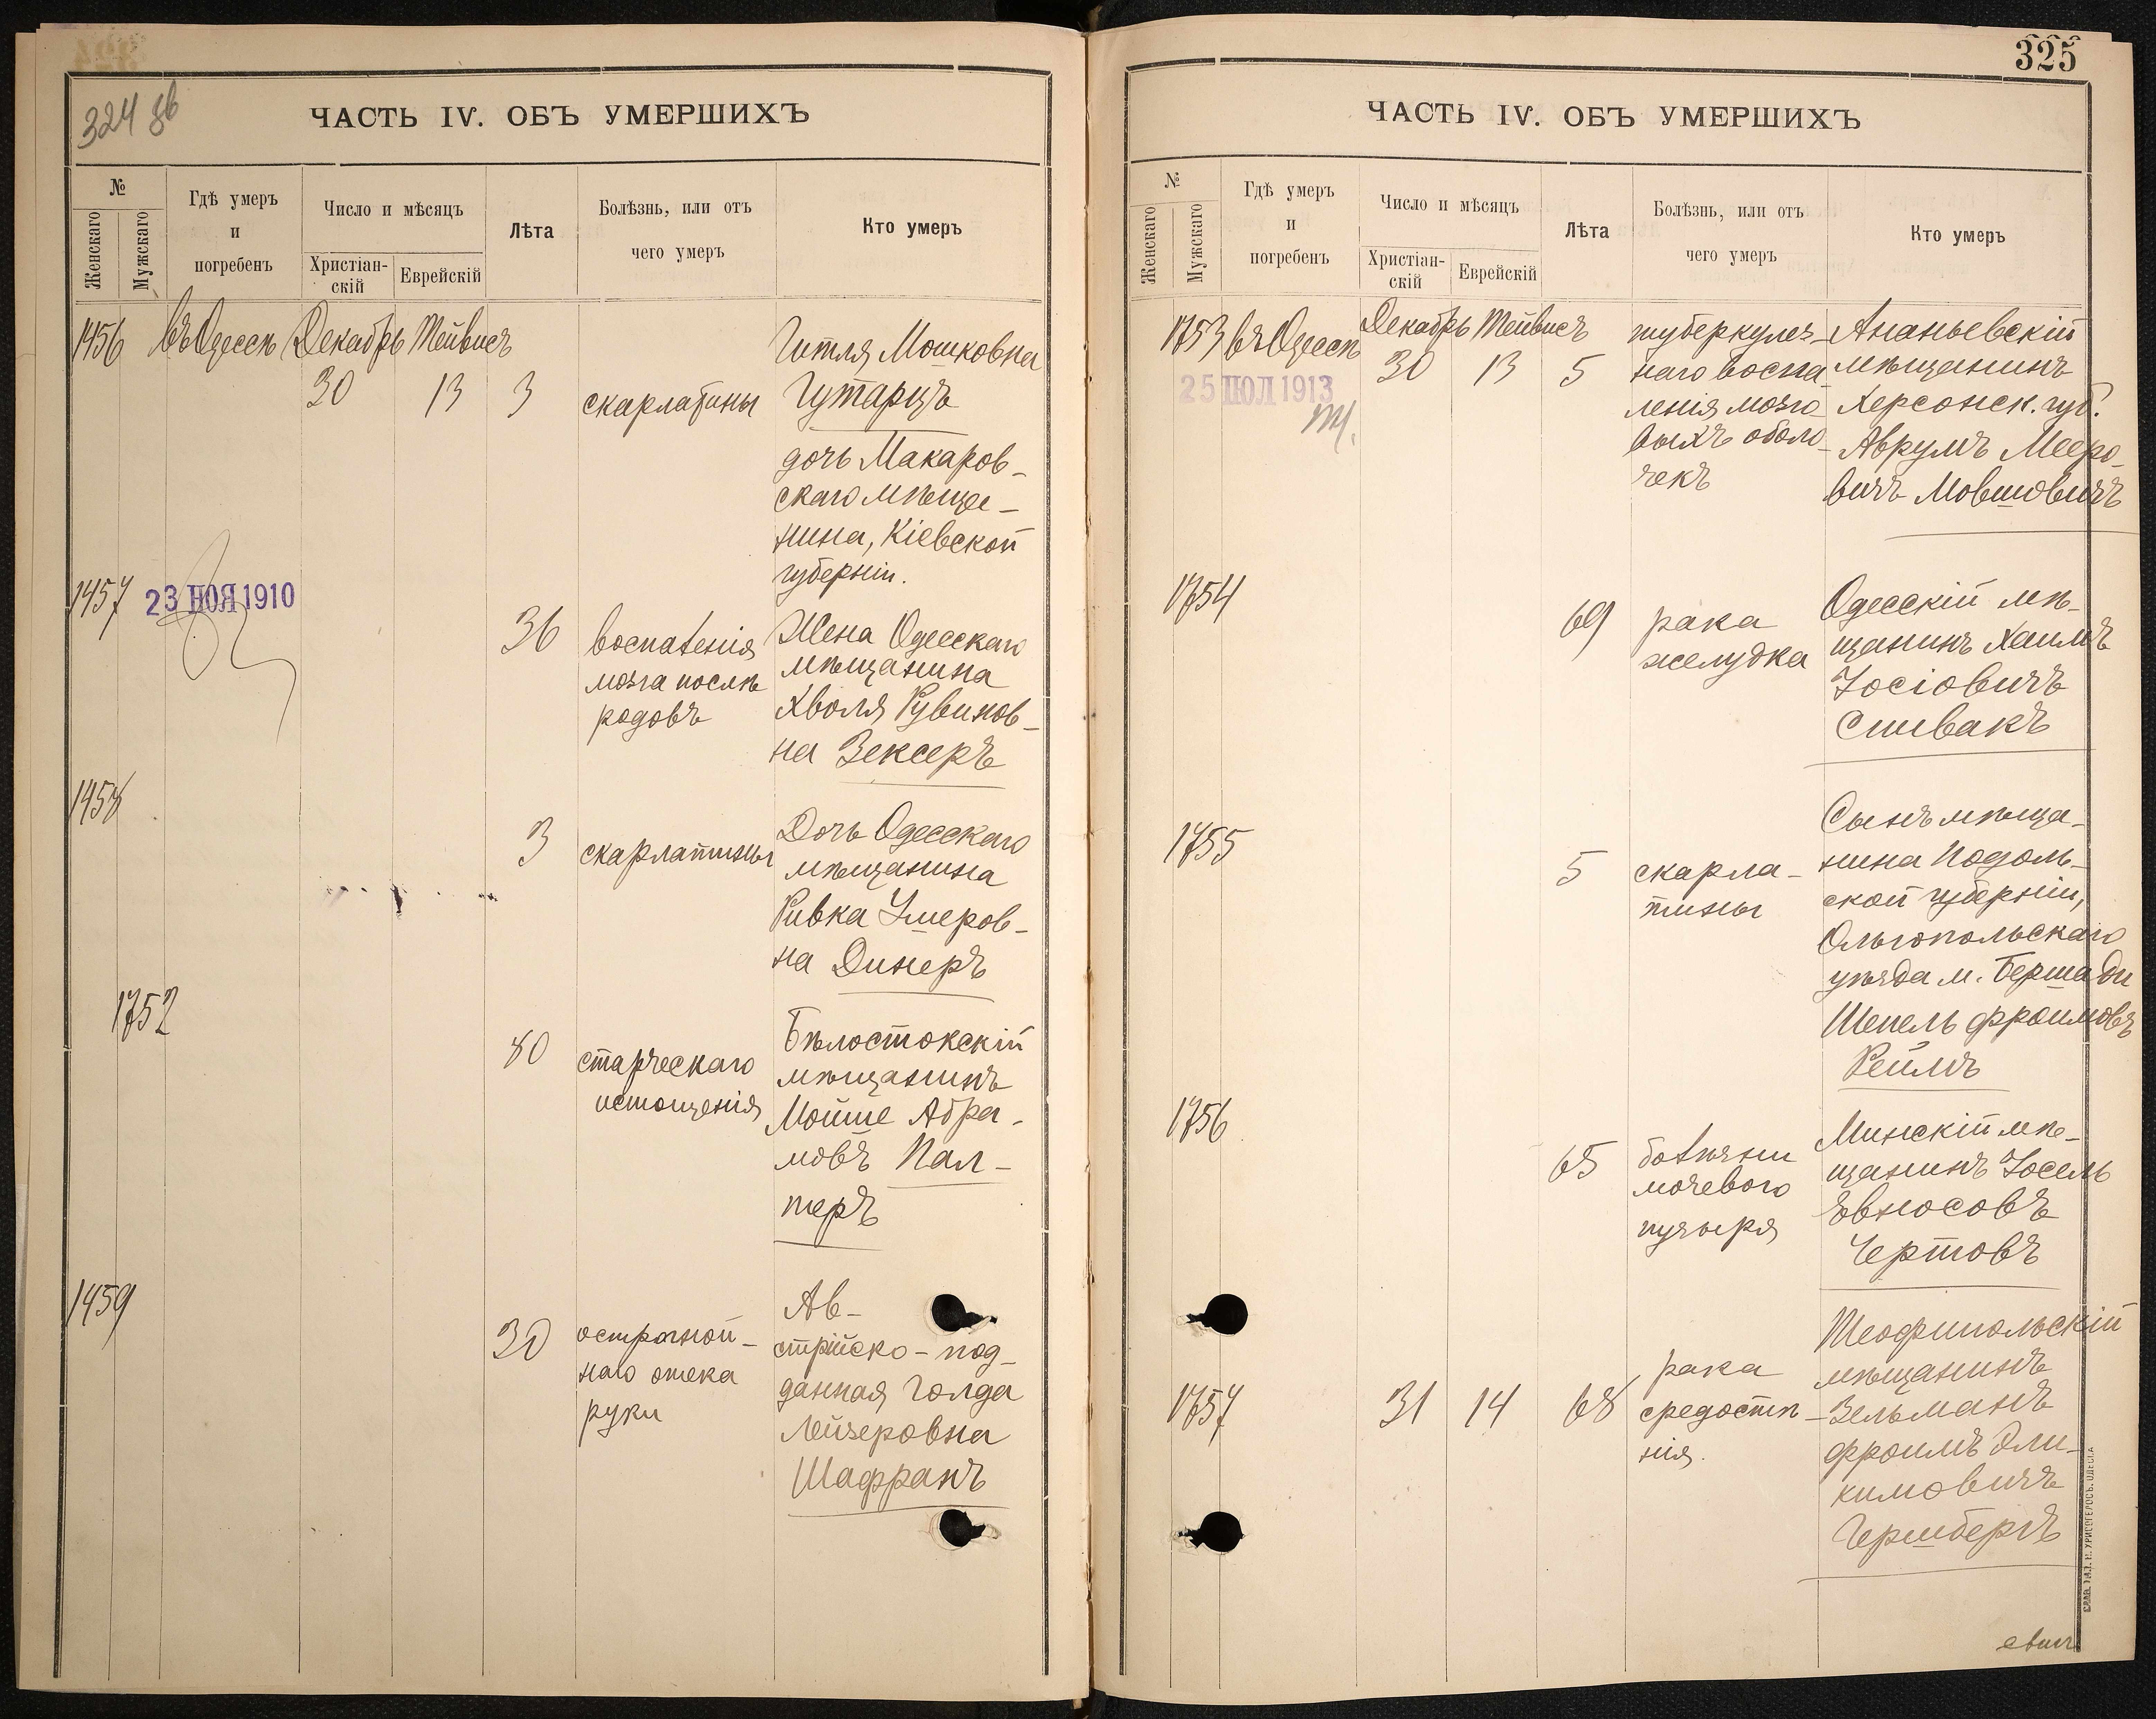 324 зв
ЧАСТЬ IV. ОБЪ УМЕРШИХЪ
№
Женскаго
Мужскаго
Гдѣ умеръ
и
погребенъ
Число и мѣсяцъ
Христіан-
скій
Еврейскій
Лѣта
Болѣзнь, или отъ
чего умеръ
Кто умеръ
1456 въ Одессѣ Декабрь Тейвисъ
30 13 3 скарлатины
Гитля Мошковна
Гутарцъ
дочь Макаров-
скаго мѣща-
нина, Кіевской
губерніи.
1457
23 НОЯ 1910
36
воспаленія
мозга послѣ
родовъ
Жена Одесскаго
мѣщанина
Хволя Рувинов-
на Зексеръ
1458
3 скарлатины
Дочь Одесскаго
мѣщанина
Ривка Умеров-
на Динеръ
1752
80
старческаго
истощенія
Бѣлостокскій
мѣщанинъ
Мойше Абра-
мовъ Пал-
теръ
1459
30
наго отека
руки
Ав-
стрійско-под-
данная Голда
Лейзеровна
Шафранъ
325
ЧАСТЬ IV. ОБЪ УМЕРШИХЪ
№
Женскаго
Мужскаго
Гдѣ умеръ
и
погребенъ
Число и мѣсяцъ
Христіан-
скій
Еврейскій
Лѣта
Болѣзнь, или отъ
чего умеръ
Кто умеръ
1753 въ Одессѣ Декабрь Тейвисъ
25 ІЮЛ 1913
30 13 5
туберкулез-
наго воспа-
ленія мозго-
выхъ оболо-
чекъ
Ананьевскій
мѣщанинъ
Херсонск. губ.
Аврумъ Мееро-
вичъ Мовшовичъ
1754
69
рака
желудка
Одесскій мѣ-
щанинъ Хаимъ
Іосіовичъ
Спивакъ
1755
5
скарла-
тины
Сынъ мѣща-
нина Подоль-
ской губерніи,
Ольгопольскаго
уѣзда м. Бершади
Шепель Фроимовъ
Реймъ
1756
65
болѣзни
мочевого
пузыря
Минскій мѣ-
щанинъ Іосель
Евносовъ
Чертовъ
1757
31 14 68
рака
средостѣ-
нія.
Теофипольскій
мѣщанинъ
Зельманъ
Фроимъ Эли-
кимовичъ
Гершбергъ